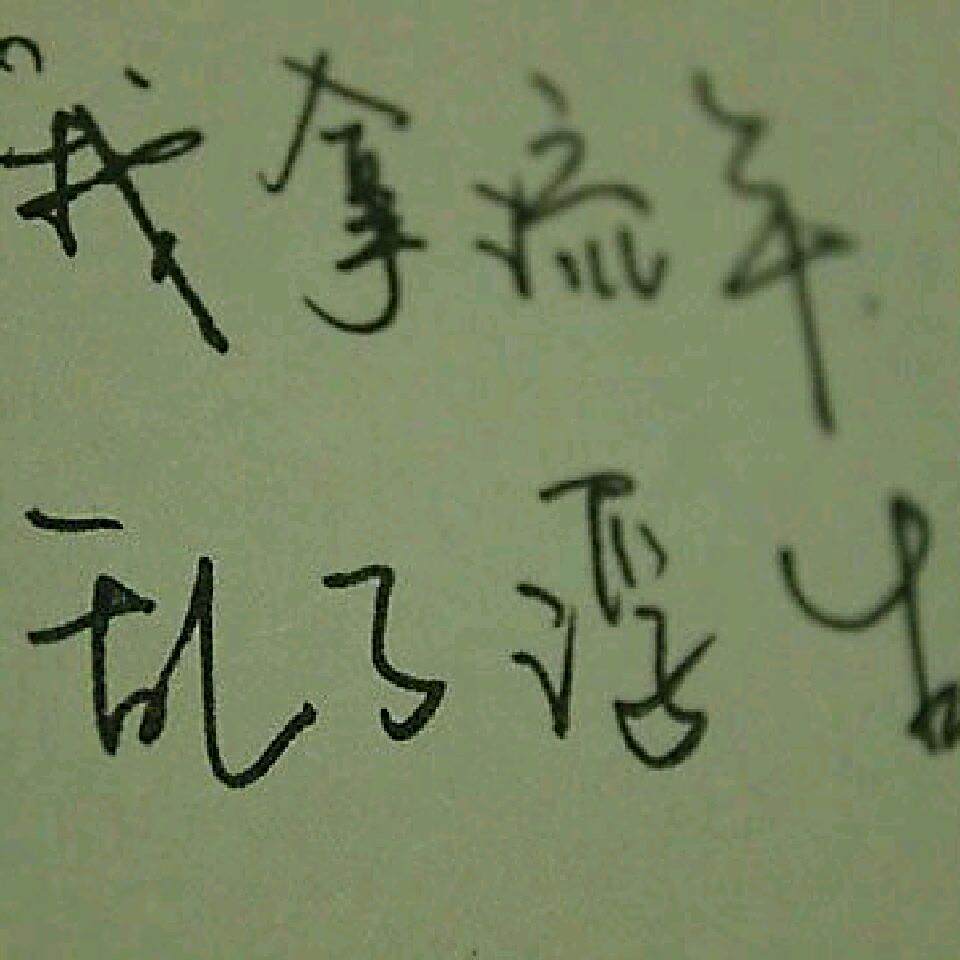 我拿流年
乱了浮